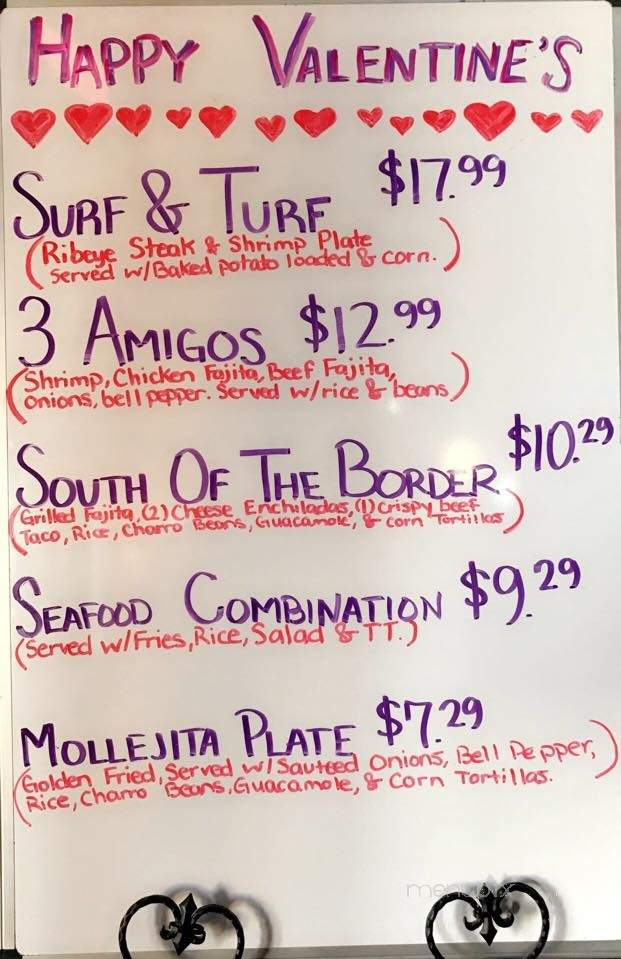 HAPPY VALENTINE'S
SURF & TURF $17.99
(Ribeye Steak & Shrimp Plate
served w/Baked potato loaded & corn.)
3 AMIGOS $12.99
(Shrimp, Chicken Fajita, Beef Fajita,
onions, bell pepper. Served w/rice & beans)
SOUTH OF THE BORDER $10.29
(Grilled Fajita, (2) Cheese Enchiladas, (1) crispy beef
Taco, Rice, Charro Beans, Guacamole, & corn Tortillas)
SEAFOOD COMBINATION $9.29
(Served w/Fries, Rice, Salad & TT.)
MOLLEJITA PLATE $7.29
(Golden Fried, Served w/Sauteed Onions, Bell Pepper,
Rice, Charro Beans, Guacamole, & Corn Tortillas.)
menupix